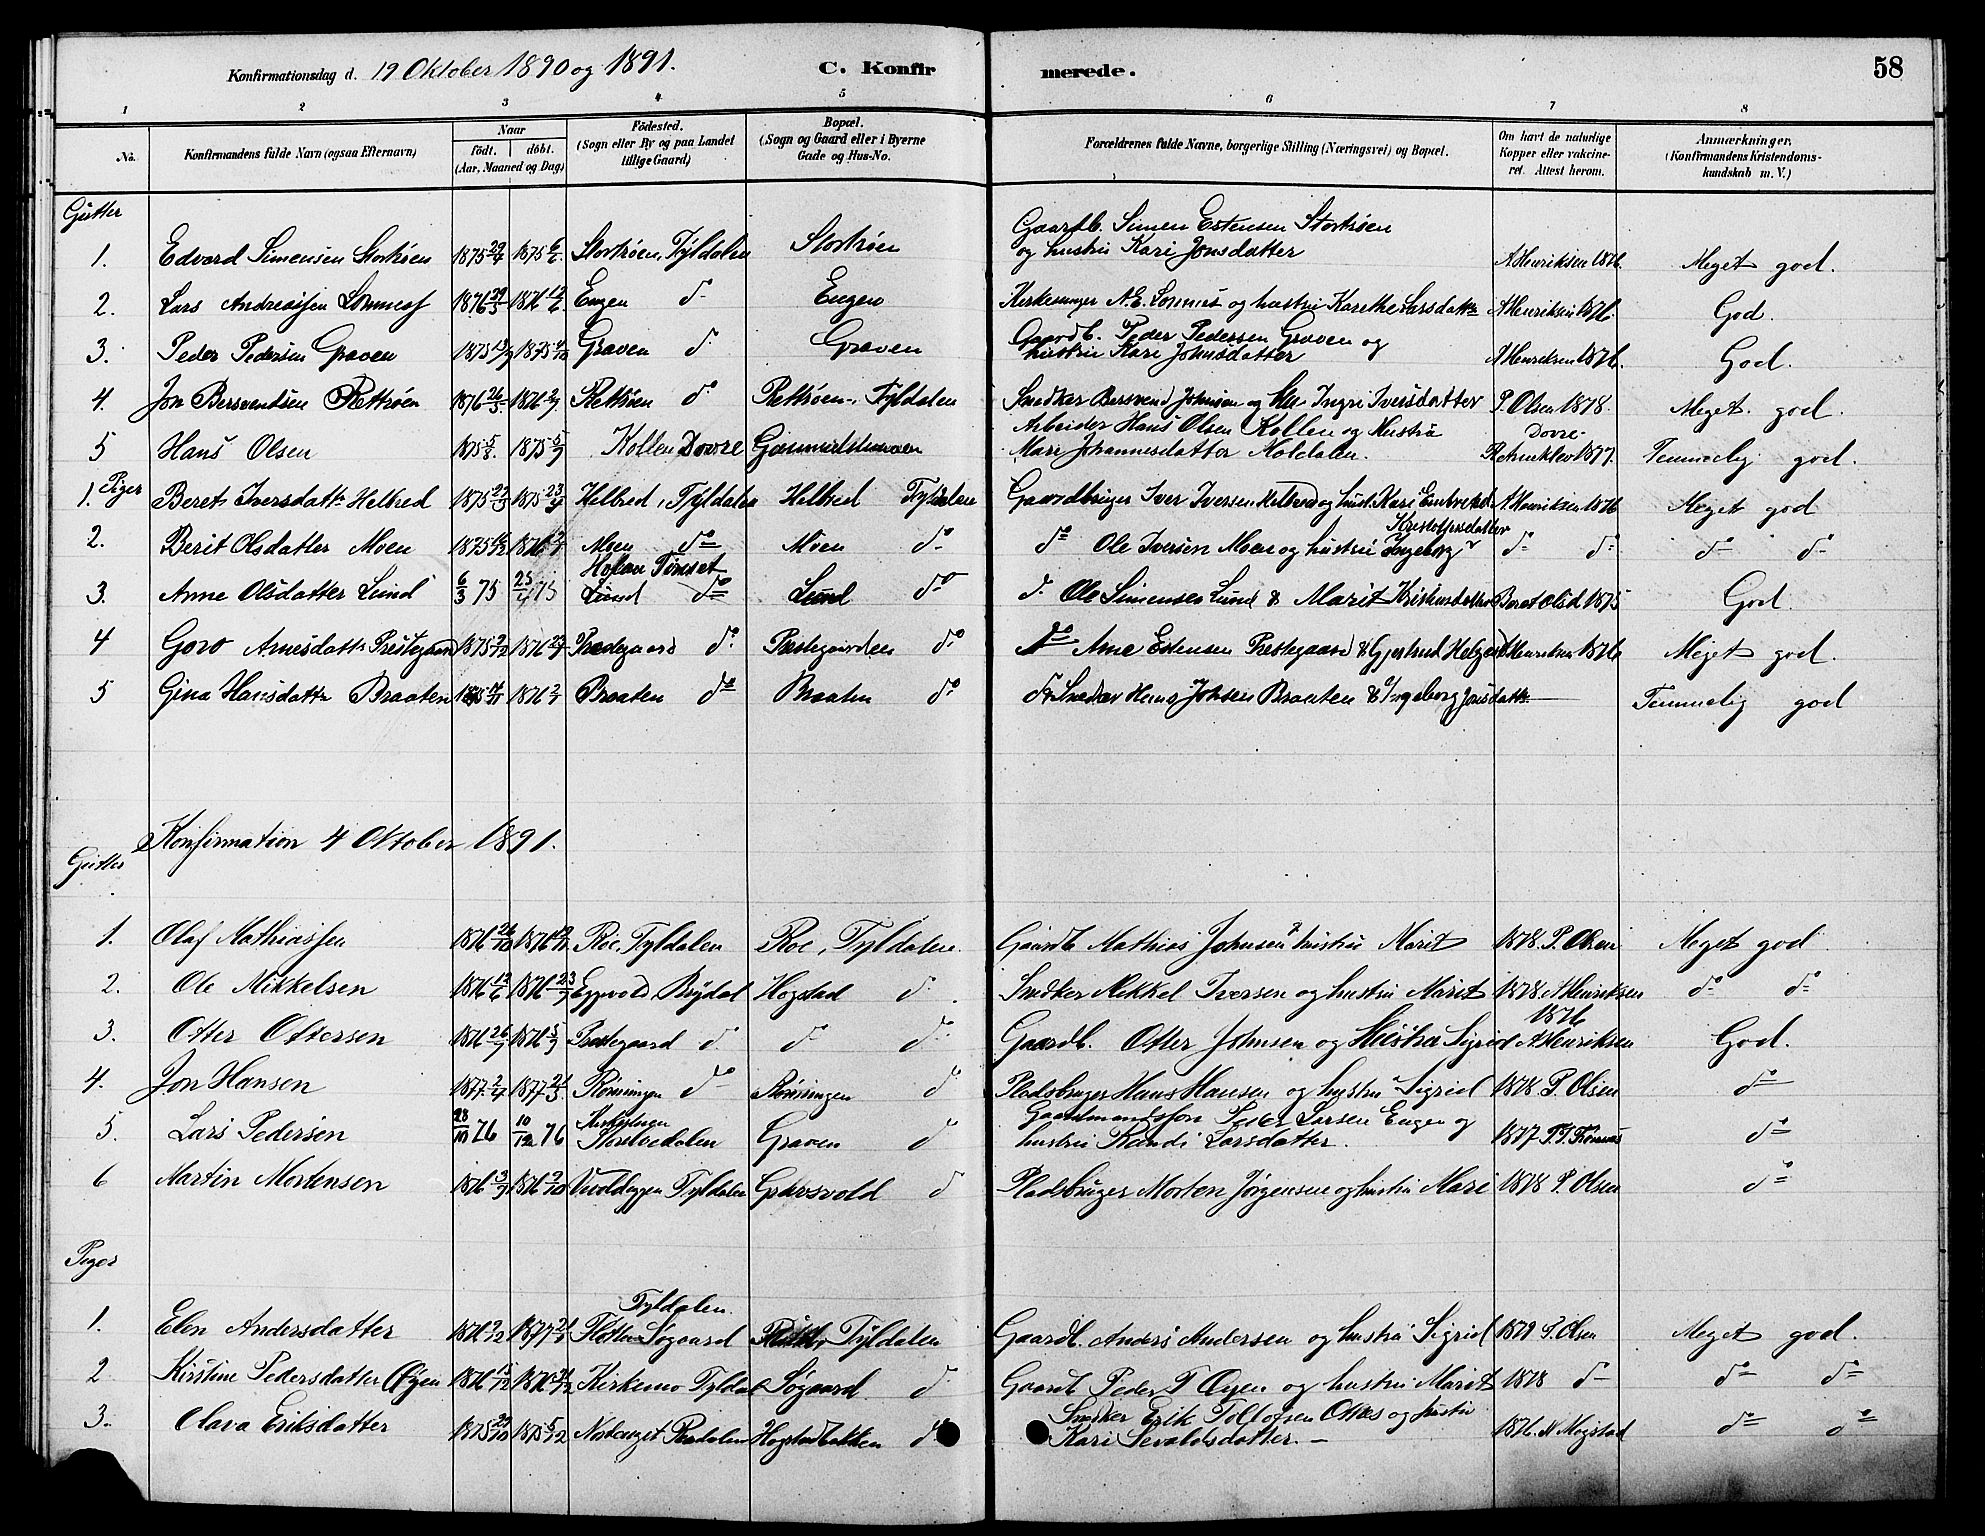 Konfirmationsdag d. 19 Oktober 1890 og 1891. C. Konfir merede. 58
1 2 3 4 5 6 7 8
No. Konfirmandens fulde Navn (ogsaa Efternavn) Naar födt. döbt. (Aar, Maaned og Dag) Födested. (Sogn eller By og paa Landet tillige Gaard) Bopæl. (Sogn og Gaard eller i Byerne Gade og Hus-No. Forældrenes fulde Navne, borgerlige Stilling (Næringsvei) og Bopæl. Om havt de naturlige Kopper eller vakcineret. Attest herom. Anmærkninger, (Konfirmandens Kristendomskundskab m. V.)
Gutter
1. Edvard Simensen Storkøen 1875 29/4 1875 6/6 Storkøen, Tyldalen Storkøen Gaardb. Simen Estensen Storkøen og hustru Kari Jonsdatter A Henriksen 1876. Meget god.
2. Lars Andreassen 1876 29/3 1876 Eugen do Eugen Kirkesanger A. E. og hustru Karethe Larsdattr A Henriksen 1876. God.
3. Peder Pedersen Graven 1875 1875 Graven do Graven Gaardb. Peder Pedersen Graven og hustru Kari Johnsdatter A Henriksen 1876. God.
4. Jon Bersvendsen Rettrøen 1876 26/3 1876 2/7 Rettrøen do Rettrøen, Tyldalen Snedker Bersvend Johnsen og Hu. Ingri Iversdatter P. Olsen 1878. Meget god.
5 Hans Olsen 1875 5/8. 1875 5/9 Kollen Dovre Arbeider Hans Olsen Kollen og Hustru Mari Johannesdatter Dovre 1877. Temmelig god.
Piger
1. Beret Iversdattr Helbred 1875 1875 Helbred, Tyldalen Helbred Tyldalen Gaardbruger Iver Iversen Helbred og hust. Kari A Henriksen 1876 Meget god
2. Berit Olsdatter Moen 1875 1876 Moen do Moen do do Ole Iversen Moen og hustru Ingeborg Kristoffersdatter do do do do
3. Anne Olsdatter Lund 6/3 75 25/4 75 Holen Tønset Lund do Lund do d. Ole Simensen Lund & Marit Beret Olsd 1875 God.
4 Goro Arnesdattr Prestegaard 1875 1876 Prestegaard do Prestegaarden do do Arne Estensen Prestegaard & Gjertrud A Henriksen 1876 Meget god.
5 Gina Hansdattr Braaten 1875 1876 Braaten do Braaten do Snedker Hans Johsen Braaten & Ingeborg Jonsdattr Temmelig god
Konfirmation 4 Oktober 1891.
Gutter
1. Olaf Mathiassen 1876 1876 Roe, Tyldalen Roe, Tyldalen. Gaardb Mathias Johnsen hustru Marit 1878. P. Olsen Meget god
2. Ole Mikkelsen 1876 1876 23/7 Eggvold Rydal Hogstad do Snedker Mikkel Iversen og hustru Marit 1878. A Henriksen do do
3. Otter Ottersen 1876 26/7 1876 5/9 Prestegaard d. do do Gaardb. Otter Johnsen og Hustru Sigrid 1876 A Henriksen God.
4. Jon Hansen 1877 2/4 1877 21/5 Rønningen do Rønningen do Pladsbruger Hans Hansen og hustru Sigrid 1878 P. Olsen do
5. Lars Pedersen 28/10 76 10/12 76 Graven do Gaardmandssøn Peder Larsen Eugen og hustru Randi Larsdatter. 1877 do
6 Martin Mortensen 1876 3/9 1876 Tyldalen Græsvold do Pladsbruger Morten Jørgensen og hustru Mari 1878 P. Olsen do
Piger
1. Elen Andersdatter 1876 1877 Tyldalen. Søgaard Tyldalen Gaardb. Anders Andersen og hustru Sigrid 1879 P. Olsen Meget god.
2 Kirstine Pedersdatter Øyen 1876 15/12 1876 Kirkemo Tyldal Søgaard do Gaardb Peder T Øyen og hustru Marit 1878 do do do
3. Olava Eriksdatter 1875 29/10 1875 5/12 Hogstadbakken do Snedker Erik og hustru Kari Sevaldsdatter. 1876. Mogstad do do